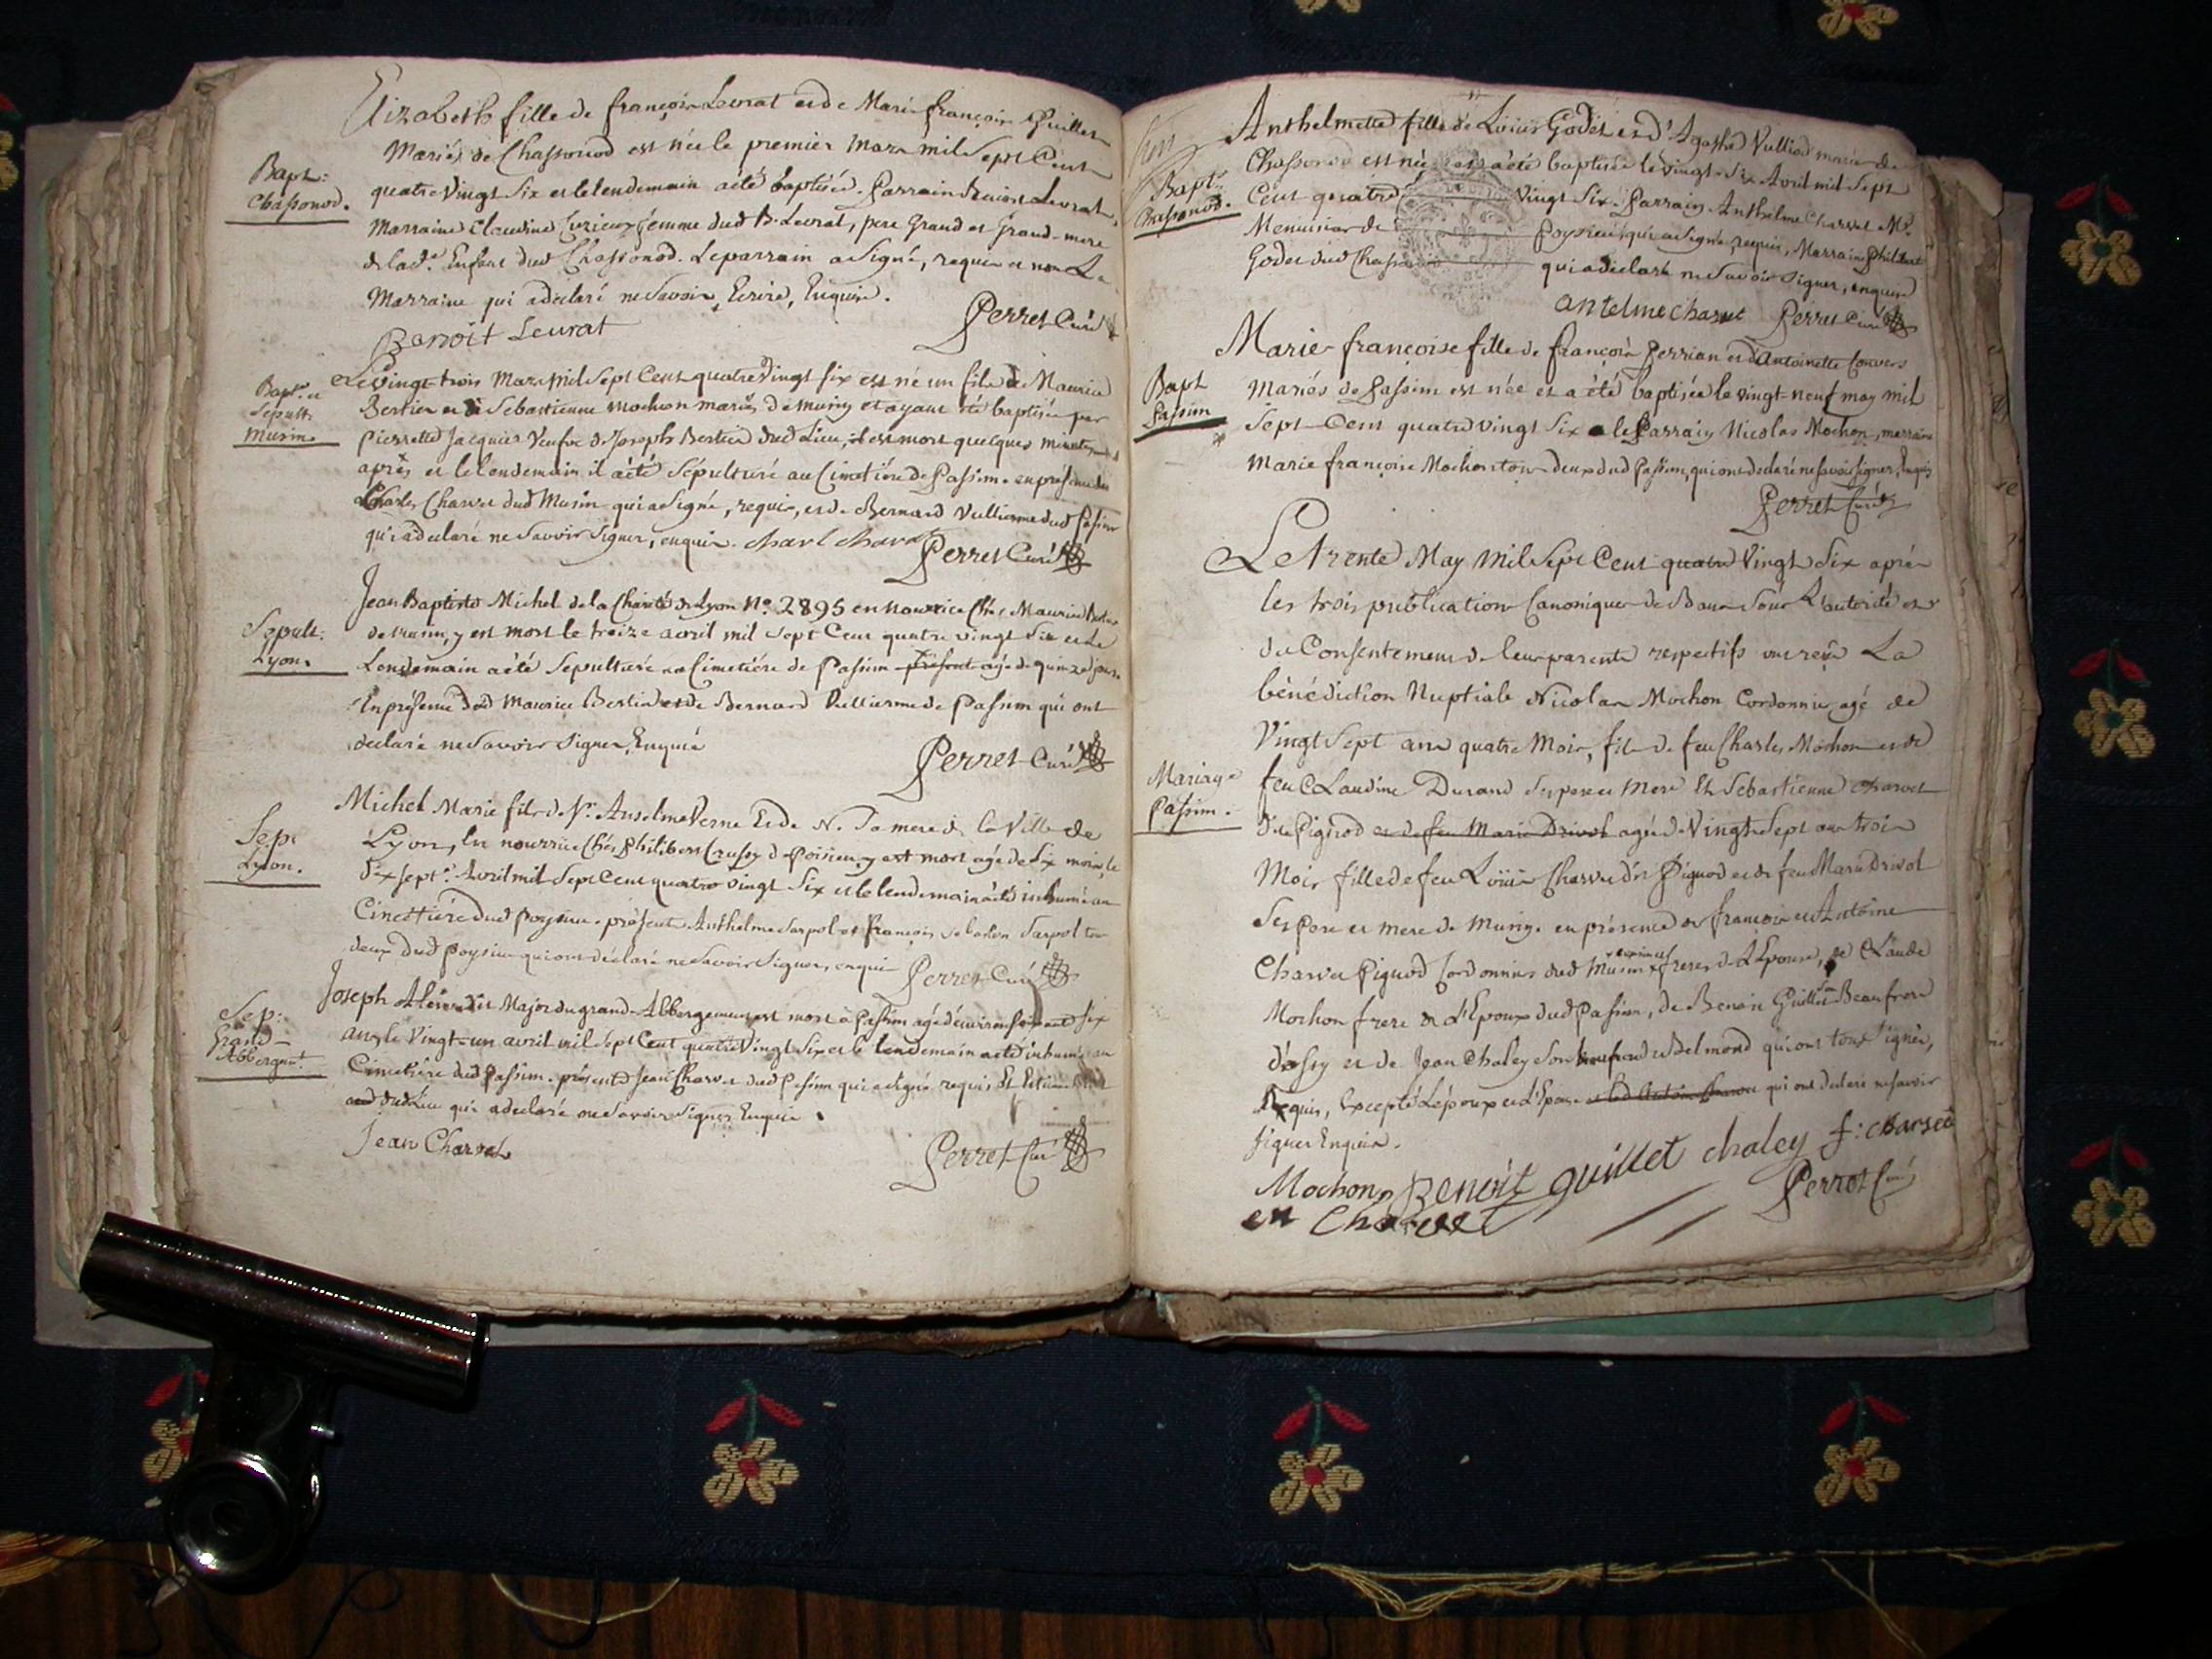 Elizabeth fille de françois Levrat et de Marie françoise Guillet
Bapt:
Chassonod.
Mariés de Chassonod est née le premier Mars mil Sept Cent
quatre Vingt Six et le lendemain a été baptisée. Parrain Benoit Levrat,
Marraine Claudine femme dud B. Levrat, pere Grand et Grand-mere
de lade. Enfant dud Chassonod. Le parrain a Signé, requis et non La
Marraine qui a déclaré ne Savoir Ecrire, Enquise.
Perret Curé
Benoit Levrat
Bapt. et
Sépult.
Musin.
Le vingt-trois Mars Mil Sept Cent quatre Vingt Six est né un fils de Maurice
Bertier et de Sebastienne Mochon mariés de Musin et ayant été baptisé par
Pierrette Jacquier Veufve de Joseph Bertier dud Lieu, il est mort quelques minutes
après et le lendemain il a été Sépulturé au Cimetière de Passim. en présence de
Charles Charvet dud Musin qui a Signé, requis, et de Bernard Vullierme dud Passim
qui a déclaré ne Savoir Signer, enquis. Charl Charvet
Perret Curé
Sepult:
Lyon.
Jean Baptiste Michel de la Charité de Lyon N.o 2895 en nourrice Chés Maurice Bertier
de Musin, y est mort le treize avril mil Sept Cent quatre vingt Six et Le
Lendemain a été Sepulturé au Cimetiére de Passim présent agé de quinze jours.
En présence dud Maurice Bertier et de Bernard Vullierme de Passim qui ont
declaré ne Savoir Signer, Enquis
Perret Curé
Sep:
Lyon.
Michel Marie fils de Sr. Anselme Verne Et de N. Sa mere de la Ville de
Lyon, En nourrice Chés Philibert de Poisieu y est mort agé de Six mois, le
Dix sept. Avril mil Sept Cent quatre Vingt Six et le lendemain a été inhumé au
Cimetiére dud Poysieu. présents Anthelme Sarpol et François Sarpol tous
deux dud Poysieu qui ont déclaré ne Savoir Signer, enquis
Perret Curé
Sep:
Grand-
Abbergmt.
Joseph dit Major du grand-Abbergement est mort à Passim agé d'environ six
ans, le Vingt-un avril mil Sept Cent quatre Vingt Six et le lendemain a été inhumé au
Cimetiére dud Passim. présents Jean Charvet dud Passim qui a Signé requis Et
dud Lieu qui a declaré ne Savoir Signer Enquis.
Jean Charvet
Perret Curé
Anthelmette fille de Loüis Godet et d'Agathe Vulliod mariés de
Bapt.
Chassonod.
Chassonod est née et a été baptisée le vingt-Six Avril mil Sept
Cent quatre Vingt Six. Parrain Anthelme Charvet Me.
Menuisier de Poysieu qui a Signé, requis, Marraine Philiberte
Godet dud Chassonod qui a déclaré ne Savoir Signer, enquise
antelme charvet Perret Curé
Bapt
Passim
Marie-françoise fille de françois Perrian et d'Antoinette Convers
Mariés de Passim est née et a été baptisée le vingt-neuf may mil
Sept-Cent quatre vingt Six le Parrain Nicolas Mochon, marraine
Marie françoise Mochon tous deux dud Passim, qui ont declaré ne Savoir Signer, Enquis
Perret Curé
Mariage
Passim.
Le Trente May Mil Sept Cent quatre Vingt Six après
les trois publications Canoniques de Bans Sous L'autorité et
du Consentement de leurs parents respectifs ont reçu La
bénédiction Nuptiale Nicolas Mochon Cordonnier agé de
Vingt Sept ans quatre Mois, fils de feu Charles Mochon et de
feu Claudine Durand Ses pere et Mere Et Sebastienne Charvet
dite Pignod et de feu Marie Drivol agée de Vingt Sept ans trois
Mois fille de feu Loüis Charvet dit Pignod et de feu Marie Drivol
Ses Pere et mere de Musin, en présence de françois et Antoine
Charvet Pignod Cordonniers dud Musin freres de L'Epouse, de Claude
Mochon frere de L'Epoux dud Passim, de Benoit Guillet Son Beaufrere
d'ossy et de Jean Chaley Son beaufrere de Belmond qui ont tous Signés,
Requis, Excepté L'époux et L'Epouse qui ont declaré ne Savoir
Signer Enquis.
Mochon Benoit guillet chaley f: charvet
en Charvet Perret Curé